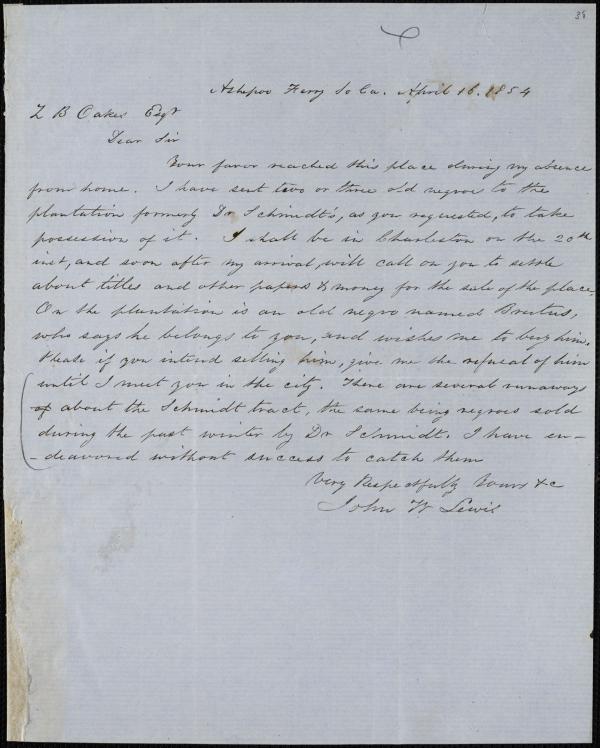 38
Ashepoo Ferry So Ca. April 16. 1854
Z B Oakes Esqr
Dear Sir
Your favor reached this place during my absence
from home. I have sent two or three old negroe to the
plantation formerly Dr Schmidt's, as you requested, to take
possession of it. I shall be in Charleston on the 20th
inst, and soon after my arrival, will call on you to settle
about titles and other papers & money for the sale of the place.
On the plantation is an old negro named Brutus,
who says he belongs to you, and wishes me to buy him.
Please if you intend selling him, give me the refusal of him
until I meet you in the city. There are several runaways
of about the Schmidt tract, the same being negroes sold
during the past winter by Dr Schmidt. I have en-
-deavored without success to catch them
Very Respectfully Yours &c
John W Lewis